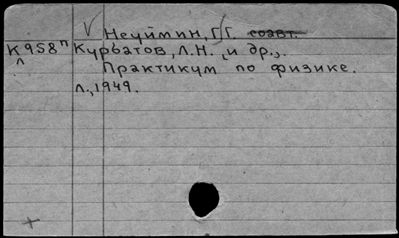 Неуймин, Г.Г. соавт.
К958п Курбатов, Л.Н., и др.,.
Практикум по физике.
Л., 1949.